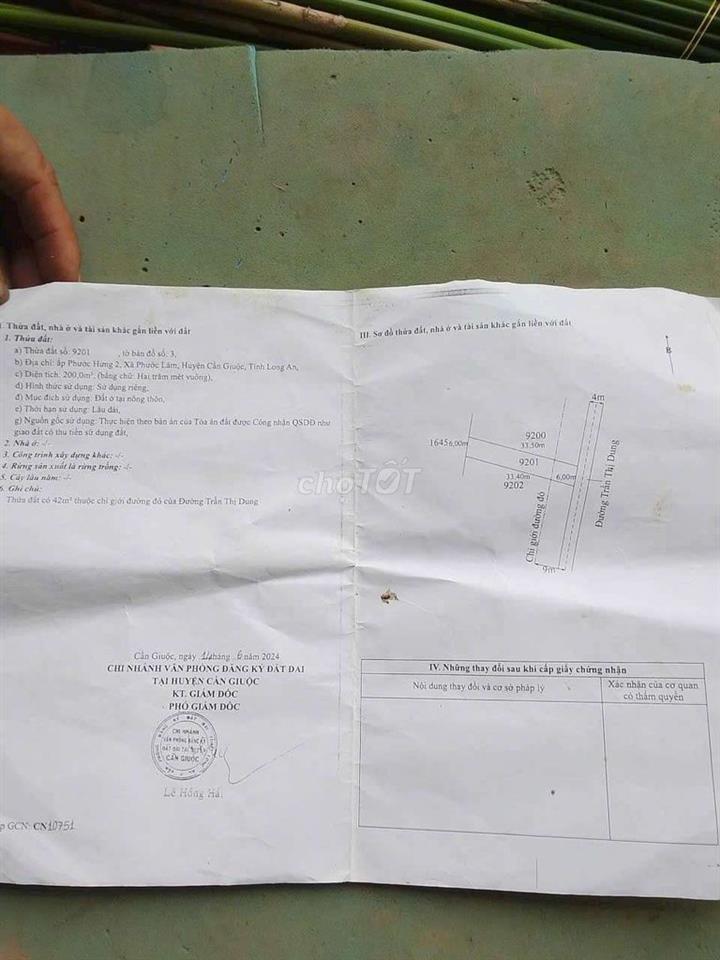 I. Thửa đất, nhà ở và tài sản khác gắn liền với đất
1. Thửa đất:
a) Thửa đất số: 9201 , tờ bản đồ số: 3,
b) Địa chỉ: ấp Phước Hưng 2, Xã Phước Lâm, Huyện Cần Giuộc, Tỉnh Long An,
c) Diện tích: 200,0m², (bằng chữ: Hai trăm mét vuông),
d) Hình thức sử dụng: Sử dụng riêng,
đ) Mục đích sử dụng: Đất ở tại nông thôn,
e) Thời hạn sử dụng: Lâu dài,
g) Nguồn gốc sử dụng: Thực hiện theo bản án của Tòa án đất được Công nhận QSDĐ như
giao đất có thu tiền sử dụng đất,
2. Nhà ở: -/-
3. Công trình xây dựng khác: -/-
4. Rừng sản xuất là rừng trồng: -/-
5. Cây lâu năm: -/-
6. Ghi chú:
Thửa đất có 42m² thuộc chỉ giới đường đỏ của Đường Trần Thị Dung
Cần Giuộc, ngày tháng 6 năm 2024
CHI NHÁNH VĂN PHÒNG ĐĂNG KÝ ĐẤT ĐAI
TẠI HUYỆN CẦN GIUỘC
KT. GIÁM ĐỐC
PHÓ GIÁM ĐỐC
CHI NHÁNH
VĂN PHÒNG ĐĂNG KÝ
ĐẤT ĐAI TẠI HUYỆN
CẦN GIUỘC
Lê Hồng Hải
GCN: CN10751
III. Sơ đồ thửa đất, nhà ở và tài sản khác gắn liền với đất
B
4m
1645
6,00m
9200
33.50m
9201
6,00m
33.40m
9202
Chỉ giới đường đỏ
Đường Trần Thị Dung
9m
IV. Những thay đổi sau khi cấp giấy chứng nhận
Nội dung thay đổi và cơ sở pháp lý
Xác nhận của cơ quan
có thẩm quyền
chợTỐT